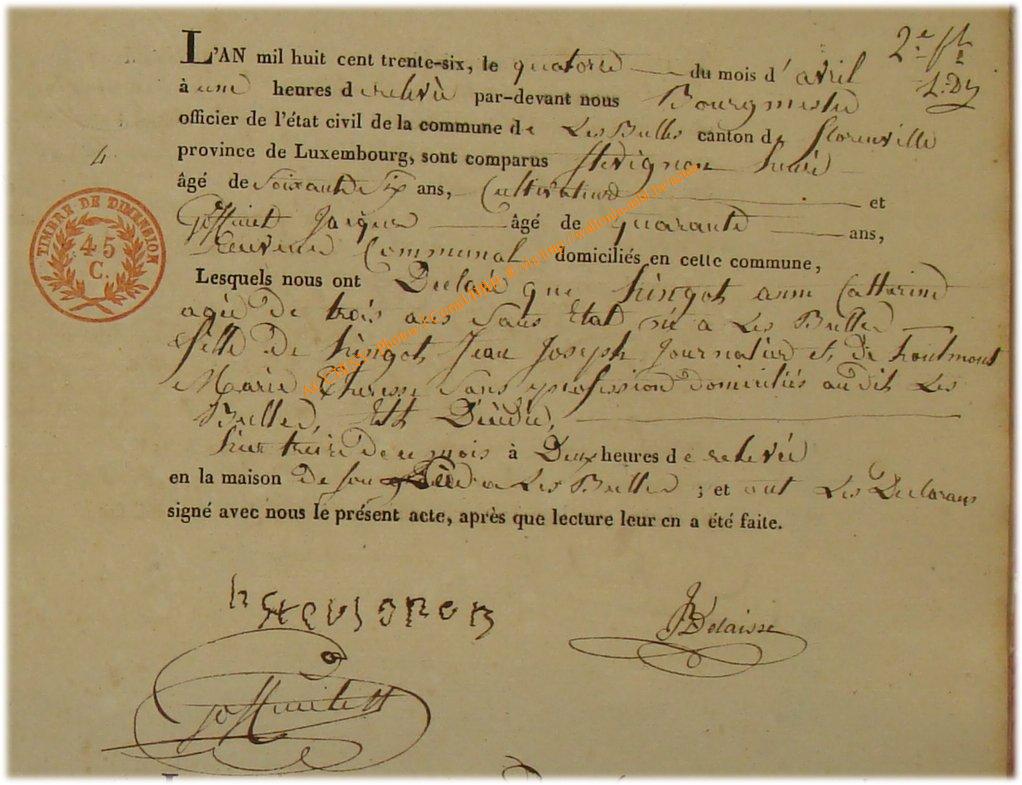 2e ft
L'AN mil huit cent trente-six, le quatorze du mois d' avril
à une heures de relevée par-devant nous Bourgmestre
officier de l'état civil de la commune de Les Bulles canton de florenville
province de Luxembourg, sont comparus
4
âgé de Soixante Six ans, Cultivateur et
Goffinet Jacques âgé de quarante ans,
Receveur Communal domiciliés en cette commune,
Lesquels nous ont Déclaré que hingot anne Catherine
agée de trois ans Sans Etat née a Les Bulles
fille de hingot Jean Joseph Journalier et de
Marie Therese Sans profession domiciliés au dit Les
Bulles, Est Décédée,
hier treize de ce mois à Deux heures de relevée
en la maison de son Père a Les Bulles ; et ont Les Declarans
signé avec nous le présent acte, après que lecture leur en a été faite.
TIMBRE DE DIMENSION
45
C.
JB Delaisse
Goffinet